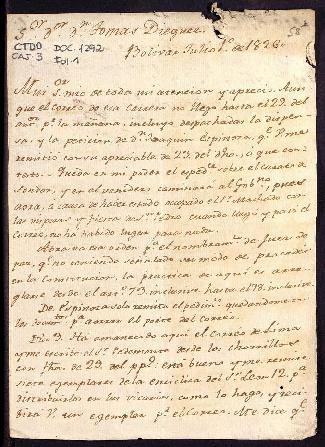 S.or D.or D.n Tomas Dieguez
58
CTDO DOC. 1292
CAJ. 3 Fol. 1
Bolivar Julio 1.o de 1826.
Muy s.or mio de toda mi atencion y apreci. Aun
que el correo de esa carrera no llegó hasta el 29. del
p.r la mañana, incluyo despachadas la dispen
sa, y la peticion de D.n Joaquin Espinoza, q.e V. me
remitió con su apreciable de 23. del dho, á que con
texto. Queda en mi poder el exped.te sobre el curato de
Sondor, y en el venidero caminará al
aora, á causa de haber estado ocupado el S.r Machado con
las visperas y fiesta de S.n Pedro quando llegó, y para el
Correo, no ha habido lugar para nada.
Abra una orden p.a el nombram.to de Juez de
paz, q.e no haviendo señalado un modo de proceder
en la Constitucion, la practica de aqui es arre
glarse desde el art.o 73. inclusive hasta el 78. inclusive.
De Espinoza solo remito el pedim.to quedandome
los docum.tos p.a ahorrar el porte del correo.
Dia 3. Ha amanecido aqui el correo de Lima
y me escribió el S.r Pedemonte desde los chorrillos
con fha. de 23. del pp.do está bueno y me remite
siete exemplares de la enciclica del S.r Leon 12. p.a
distribuirlos en los vicarios, como lo hago, y reci
birá V. un exemplar p.r el Correo. Me dice q.e